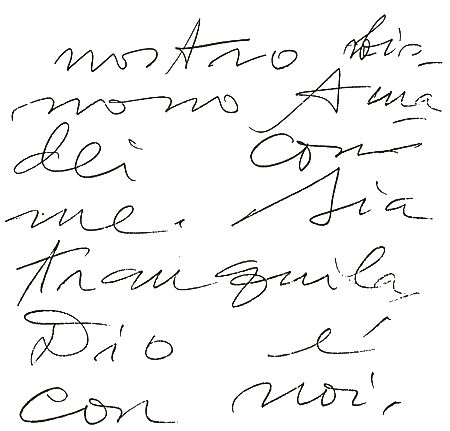 nostro bis-
nono Ama
dei con
me. Sia
tranquila
Dio é
con noi.